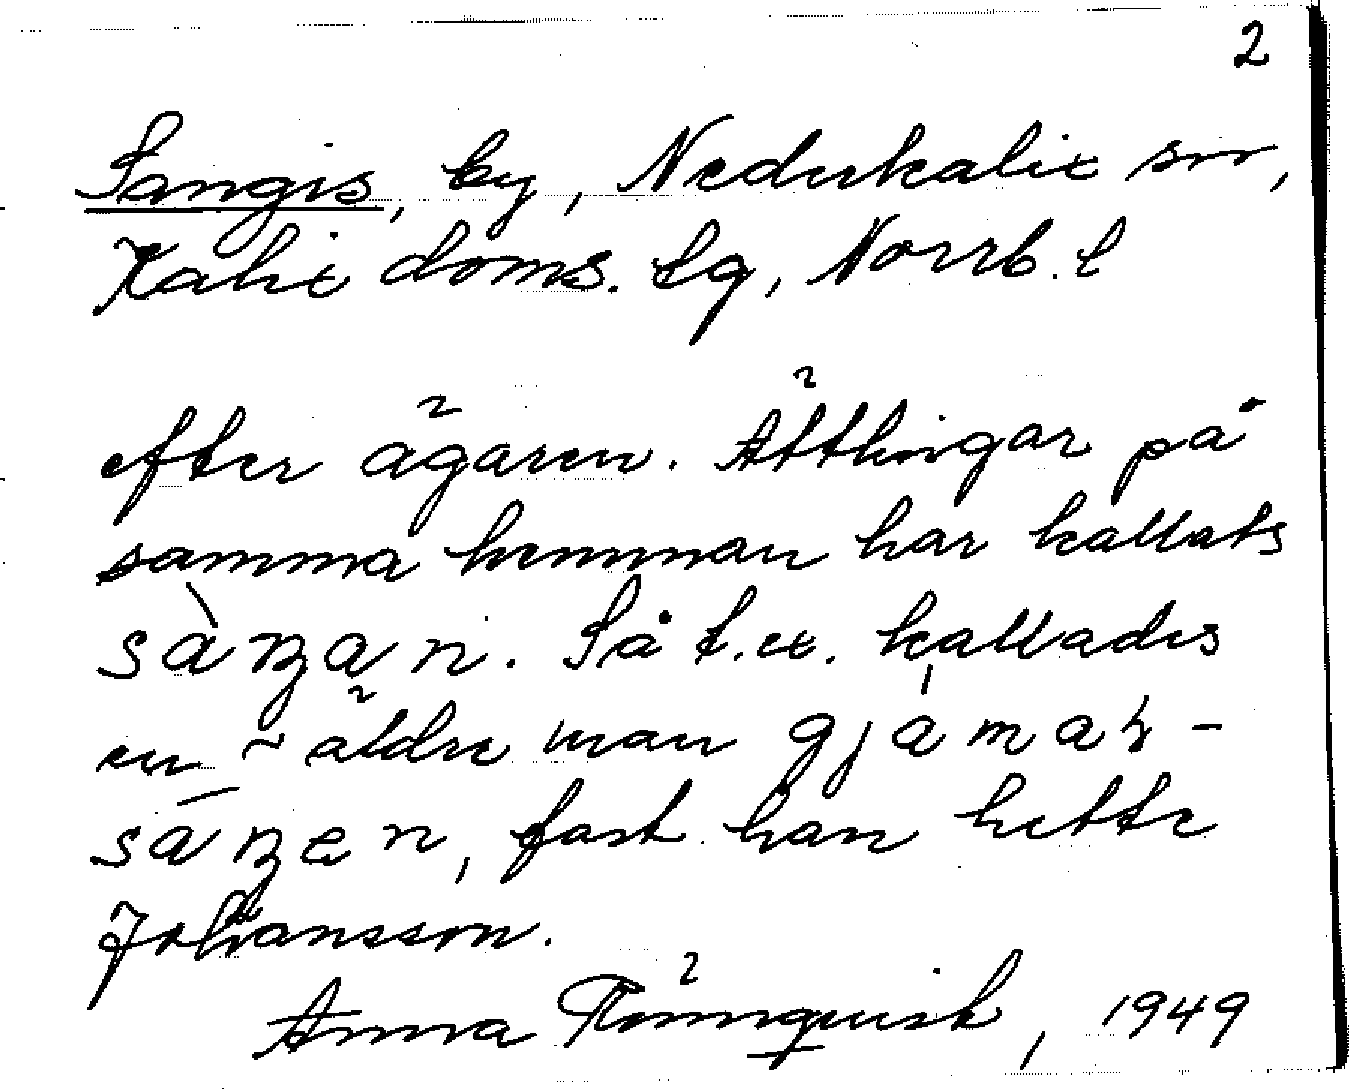 2
Sangis, by, Nederkalix sn,
Kalix doms. tg, Norrb. l
efter ägaren. Ättlingar på
samma hemman har kallats
Så t.ex. kallades
en äldre man
fast han hette
Johansson.
Anna Rönnquist, 1949